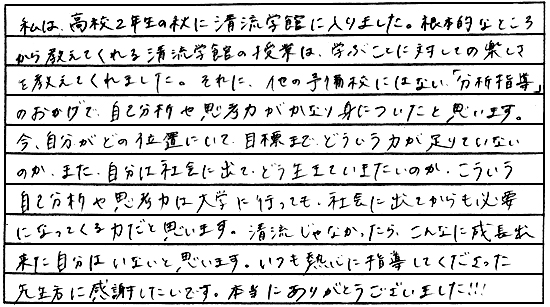 私は、高校2年生の秋に清流学館に入りました。根本的なところ
から教えてくれる清流学館の授業は、学ぶことに対しての楽しさ
を教えてくれました。それに、他の予備校にはない「分析指導」
のおかげで、自己分析や思考力がかなり身についたと思います。
今、自分がどの位置にいて、目標まで、どういう力が足りていない
のか、また、自分は社会に出て、どう生きていきたいのか、こういう
自己分析や思考力は大学に行っても、社会に出てからも必要
になってくる力だと思います。清流じゃなかったら、こんなに成長出
来た自分はいないと思います。いつも熱心に指導してくださった
先生方に感謝したいです。本当にありがとうございました!!!